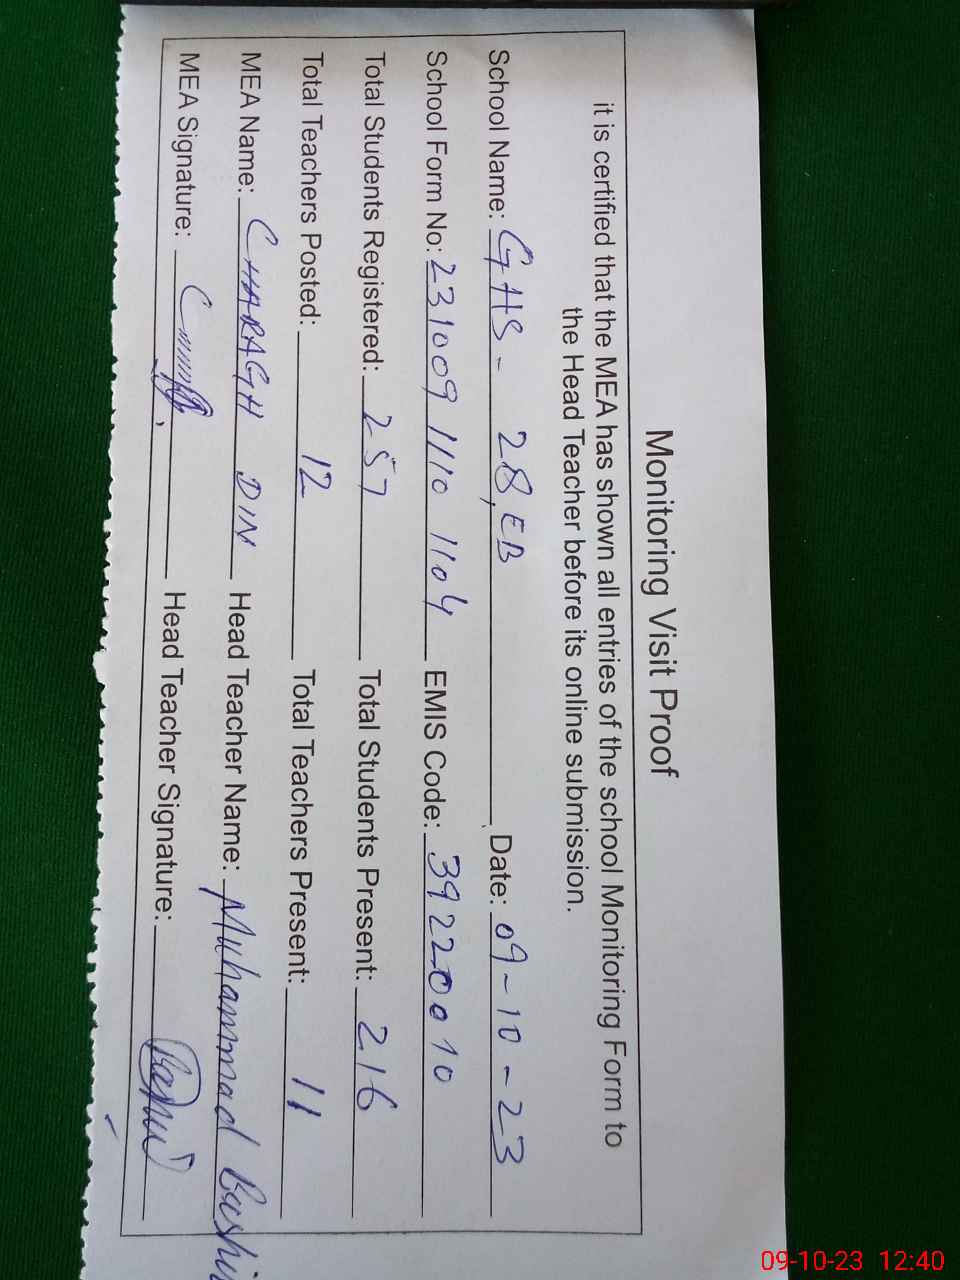 Monitoring Visit Proof
it is certified that the MEA has shown all entries of the school Monitoring Form to
the Head Teacher before its online submission.
School Name: GHS - 28,EB Date: 09-10-23
School Form No: 231009 1110 1104 EMIS Code: 39220010
Total Students Registered: 257 Total Students Present: 216
Total Teachers Posted: 12 Total Teachers Present: 11
MEA Name: CHARAGH DIN Head Teacher Name: Muhammad Bashir
MEA Signature: Head Teacher Signature:
09-10-23 12:40